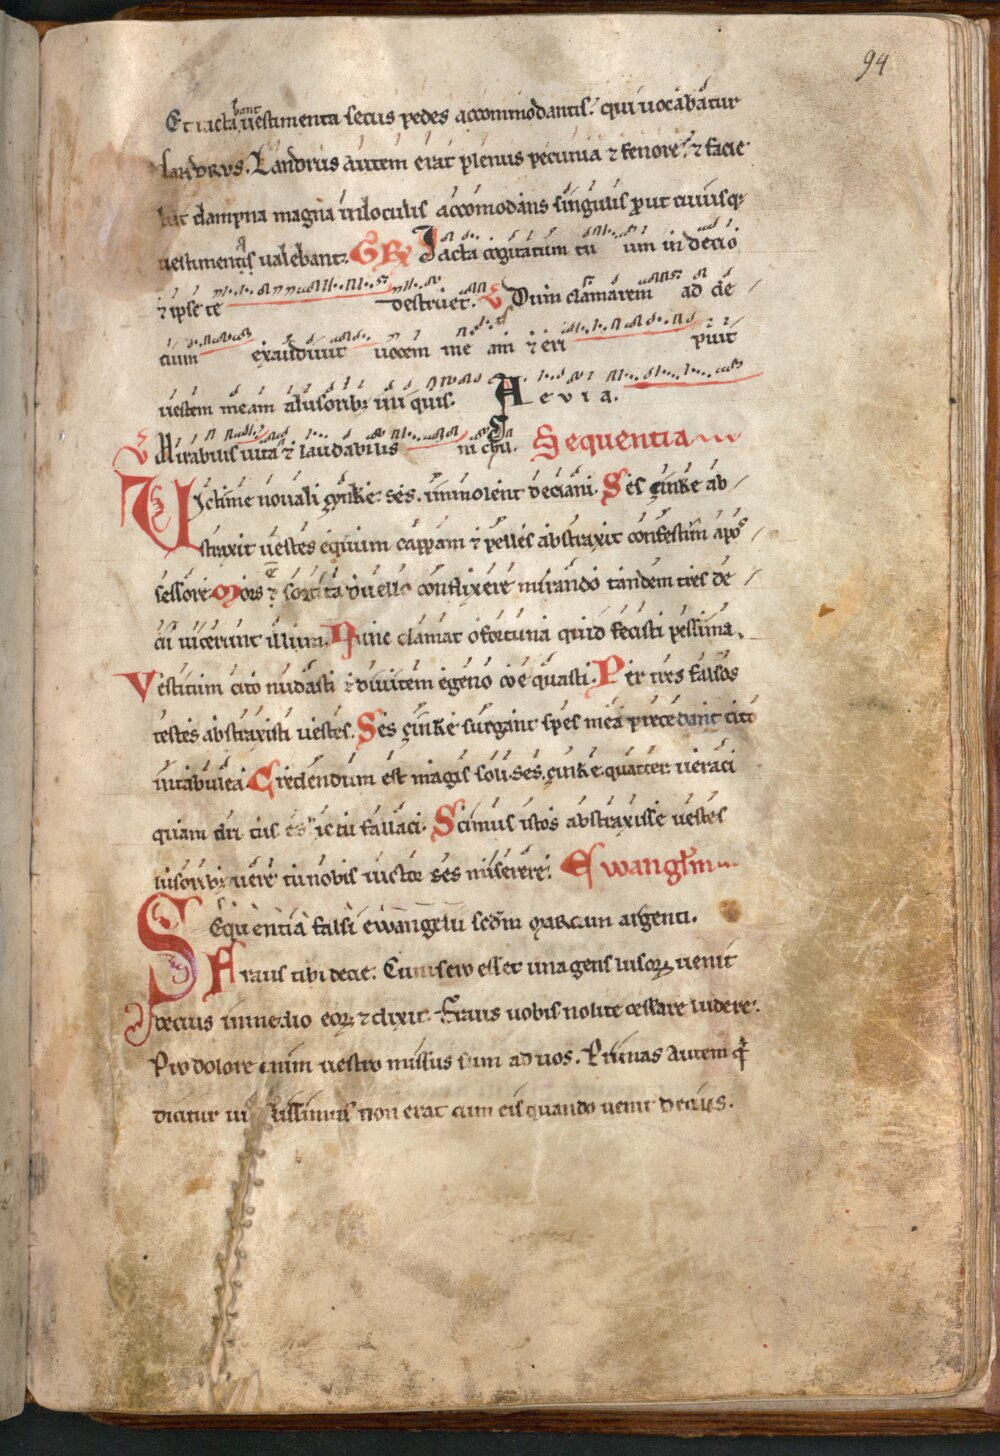 94
Et iactabant vestimenta secus pedes accommodantis. qui uocabatur
landrus. Landrus autem erat plenus pecunia ⁊ fenore. ⁊ facie
bat dampna magna in loculis accomodans singulis put cuiusq;
uestimentis ualebant. GR Iacta cogitatum tu um in decio
⁊ ipse te destruet. V Dum clamarem ad de
cium exaudiuit uocem me am ⁊ eri puit
uestem meam a lusorib; ini quis. Aevia.
V Mirabilis uita ⁊ laudabilis Sequentia
Victime nouali zynke. ses. immolent deciani. Ses zinke ab
straxit uestes equum cappam ⁊ pelles abstraxit confestim a pos
sessore Mors ⁊ sortita duello conflixere mirando tandem tres de
cii uicerunt illum. Nunc clamat o fortuna quid fecisti pessima.
Vestitum cito nudasti ⁊ diuitem egeno coequasti. Per tres falsos
testes abstraxisti uestes. Ses zinke surgant spes mea precedant cito
in tabulea. Credendum est magis soli. ses. zinke quatter ueraci
quam dri tus es ictu fallaci. Scimus istos abstraxisse uestes
lusorib; uere tu nobis uictor ses miserere. Ewanglm
Sequentia falsi ewangelii sedm marcam argenti.
Fraus tibi decie. Cum sero esset una gens lusorum uenit
decius in medio eorum ⁊ dixit. Fraus uobis nolite cessare ludere.
Pro dolore enim uestro missus sum ad uos. Primas autem q
dicitur ui lissimus non erat cum eis quando uenit decius.